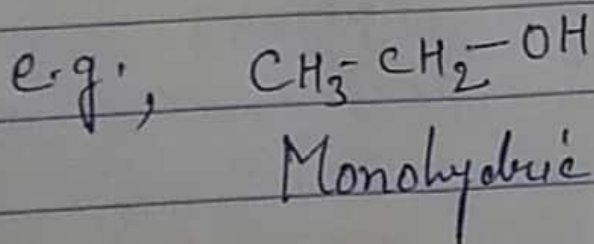 e.g., CH₃-CH₂-OH
Monohydric